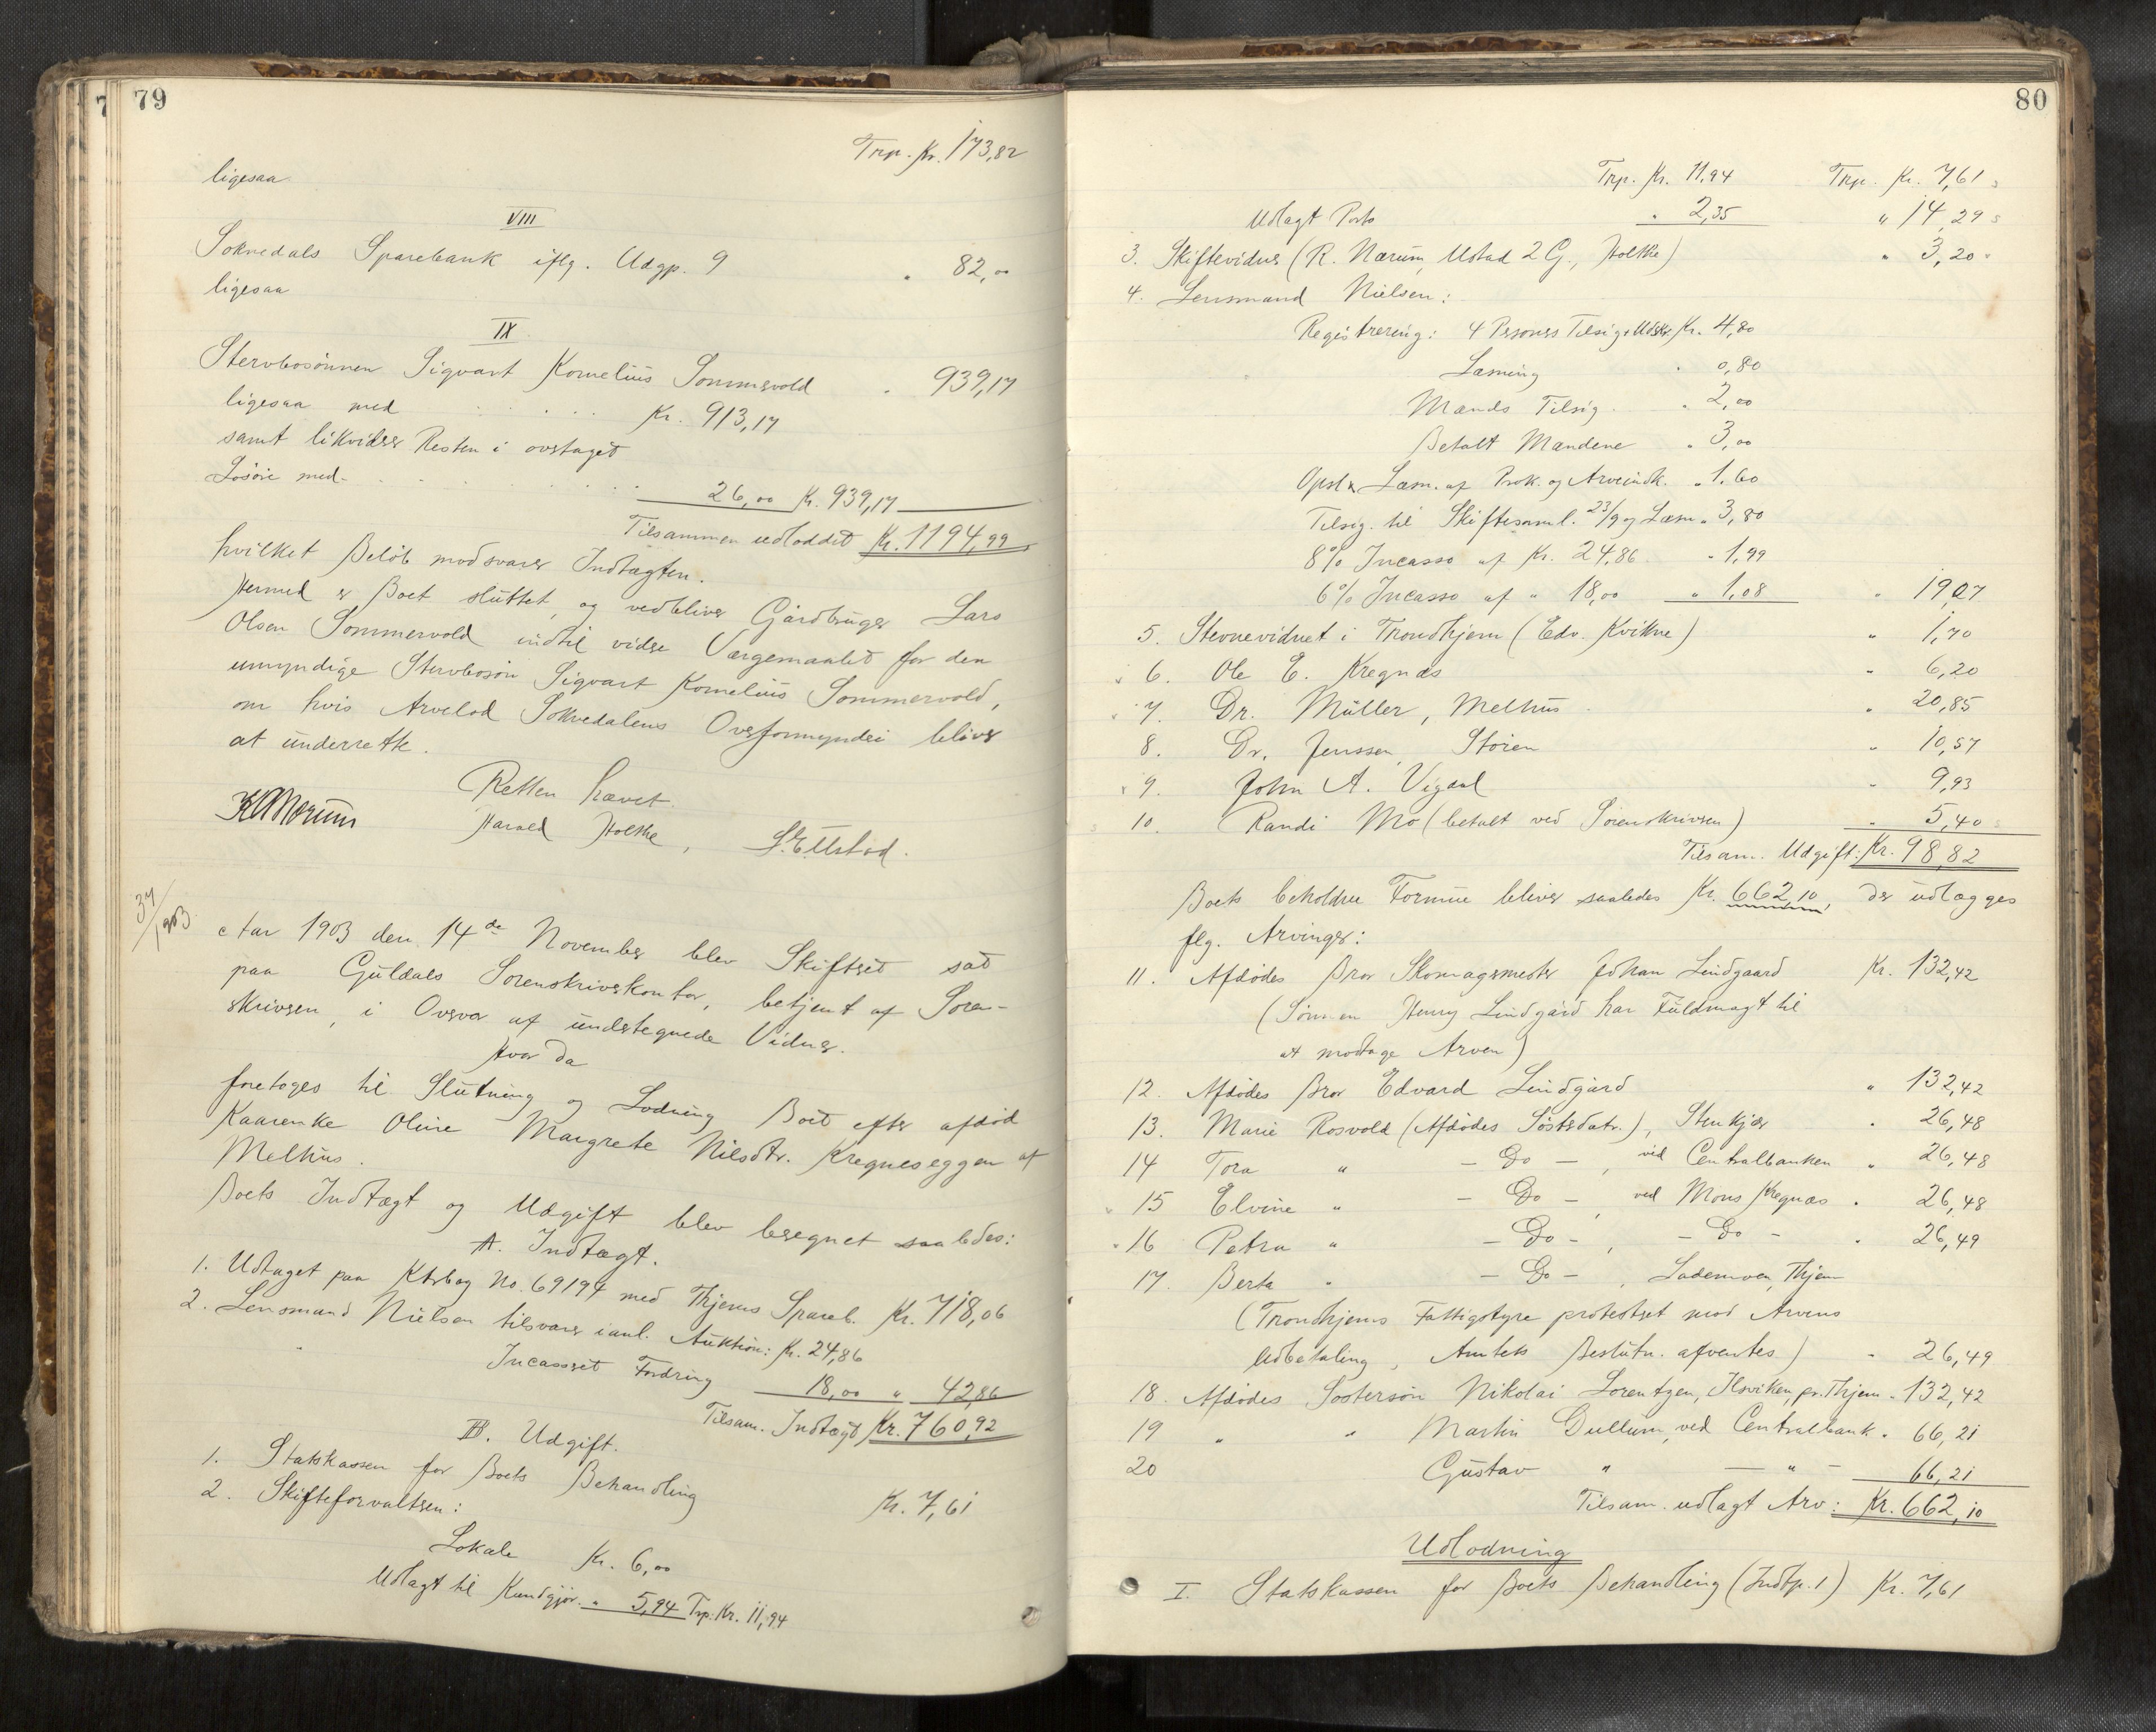 79
Trp. Kr. 173,82
ligesaa
VIII
Soknedals Sparebank iflg. Udgp. 9 " 82,00
ligesaa
IX
Stervbosønnen Sigvart Kornelius Sommervold " 939,17
ligesaa med . . . . . Kr. 913,17
samt likvideres Resten i overtaget
Løsøre med . . . . . . 26,00 Kr. 939,17
Tilsammen udloddet Kr. 1194,99
hvilket Beløb modsvarer Indtægten.
Hermed er Boet sluttet, og vedbliver Gårdbruger Lars
Olsen Sommervold indtil videre Værgemaalet for den
umyndige Stervbosøn Sigvart Kornelius Sommervold,
om hvis Arvelod Soknedalens Overformynderi bliver
at underrette.
Retten hævet.
Harald Holthe, S. E. Ustad.
37/1903
Aar 1903 den 14de November blev Skifteret sat
paa Guldals Sorenskriverkontor, betjent af Soren-
skriveren, i Overvær af undertegnede Vidner.
Hvor da
foretoges til Slutning og Lodning Boet efter afdød
Kaarenke Oline Margrete Nilsdtr. Kregneseggen af
Melhus.
Boets Indtægt og Udgift blev beregnet saaledes:
A. Indtægt.
1. Udtaget paa Ktrbog No. 69194 med Thjems Spareb. Kr. 718,06
2. Lensmand Nielsen tilsvarer i anl. Auktion: Kr. 24,86
Incasseret Fordring 18,00 " 42,86
Tilsam. Indtægt Kr. 760,92
B. Udgift.
1. Statskassen for Boets Behandling Kr. 7,61
2. Skifteforvalteren:
Lokale Kr. 6,00
Udlagt til Kundgjør. " 5,94 Trp. Kr. 11,94
80
Trp. Kr. 11,94 Trp. Kr. 7,61
Udlagt Porto " 2,35 " 14,29
3. Skiftevidner (R. Nærum, Ustad 2 G., Holthe) " 3,20
4. Lensmand Nielsen:
Registrering: 4 Persones Tilsig. + Udskr. Kr. 4,80
Læsning " 0,80
Mænds Tilsig. " 2,00
Betalt Mændene " 3,00
Opsl. & Læsn. af Prok. og Arveindk. " 1,60
Tilsig. til Skiftesaml. 23/9 og Læsn. " 3,80
8% Incasso af Kr. 24,86 " 1,99
6% Incasso af " 18,00 " 1,08 " 19,07
5. Stevnevidnet i Trondhjem (Edv. Kvikne) " 1,70
6. Ole E. Kregnæs " 6,20
7. Dr. Müller, Melhus " 20,85
8. Dr. Jenssen, Støren " 10,57
9. John A. Vigdal " 9,93
10. Randi Mo (betalt ved Sorenskriveren) " 5,40
Tilsam. Udgift: Kr. 98,82
Boets beholdne Formue bliver saaledes Kr. 662,10, der udlægges
flg. Arvinger:
11. Afdødes Bror Skomagermester Johan Lindgaard Kr. 132,42
(Sønnen Henry Lindgård har Fuldmagt til
at modtage Arven)
12. Afdødes Bror Edvard Lindgård " 132,42
13. Marie Rosvold (Afdødes Søsterdatr.), Stenkjær " 26,48
14 Tora " - Do -, ved Centralbanken " 26,48
15 Elvine " - Do -, ved Mons Kregnæs " 26,48
16 Petra " - Do -, - Do - " 26,49
17. Berta " - Do -, Lademoen, Thjem
(Trondhjems Fattigstyre protesteret mod Arvens
Udbetaling, Amtets Beslutn. afventes) " 26,49
18. Afdødes Søstersøn Nikolai Lorentzen, Ilsviken, pr. Thjem " 132,42
19 " " Martin Dullum, ved Centralbank " 66,21
20 Gustav " - " - 66,21
Tilsam. udlagt Arv: Kr. 662,10
Udlodning
I. Statskassen for Boets Behandling (Indtp. 1) Kr. 7,61